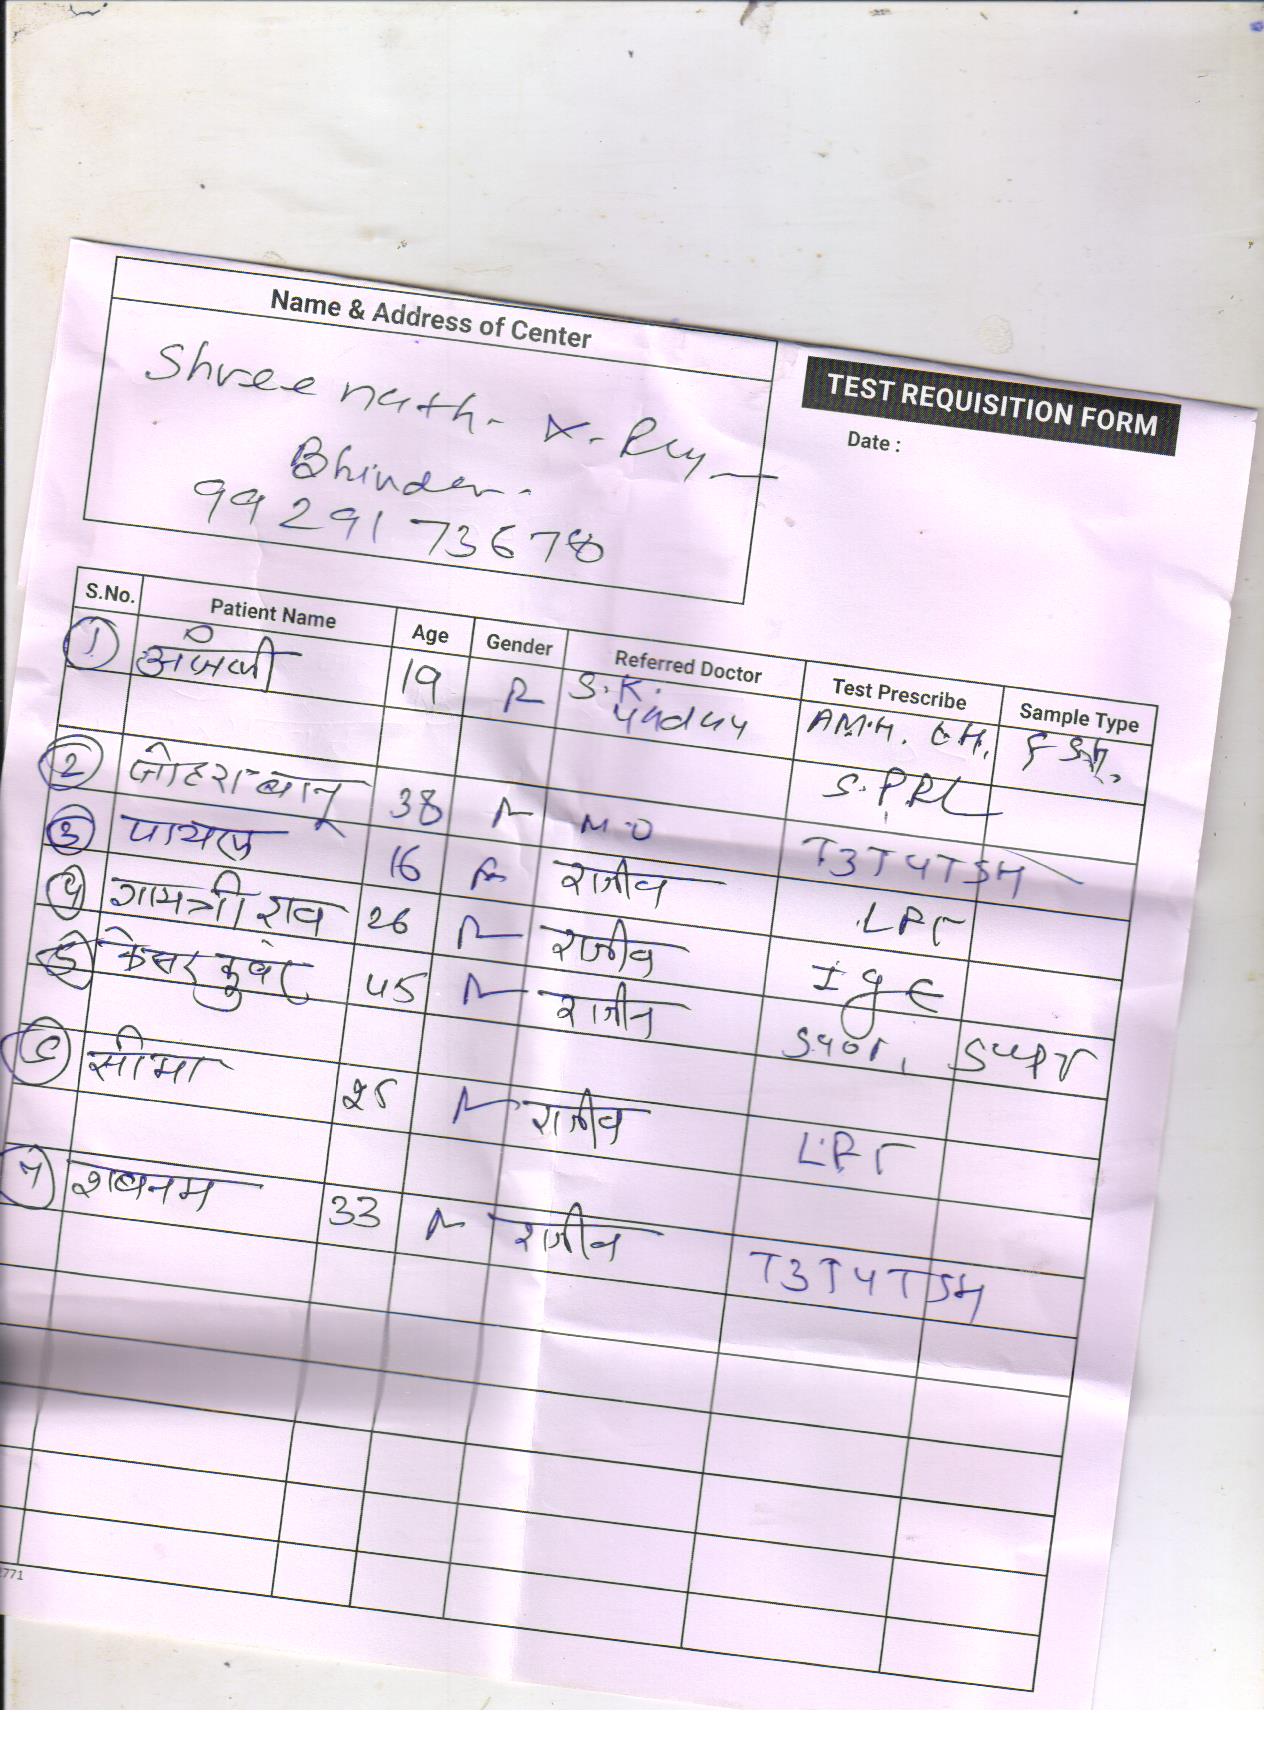 Name & Address of Center
Shree nath. X-Ray
Bhinder.
99 291 73678
TEST REQUISITION FORM
Date :
S.No. Patient Name Age Gender Referred Doctor Test Prescribe Sample Type
1 19 S.K. Yadav AMH. LH. FSH.
S.PRL
2 जोहरा बानू 38 M.O T3T4TSH
3 पायल 16 राजीव LFT
4 गायत्री राव 26 राजीव IgE
5 केसर कुवंर 45 राजीव SGOT, SGPT
6 सीमा 25 राजीव LFT
7 शबनम 33 राजीव T3T4TSH